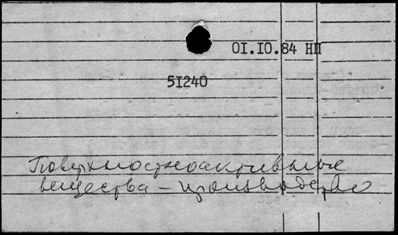 01.10.84 НП
51240
Поверхностноактивные
вещества – производство